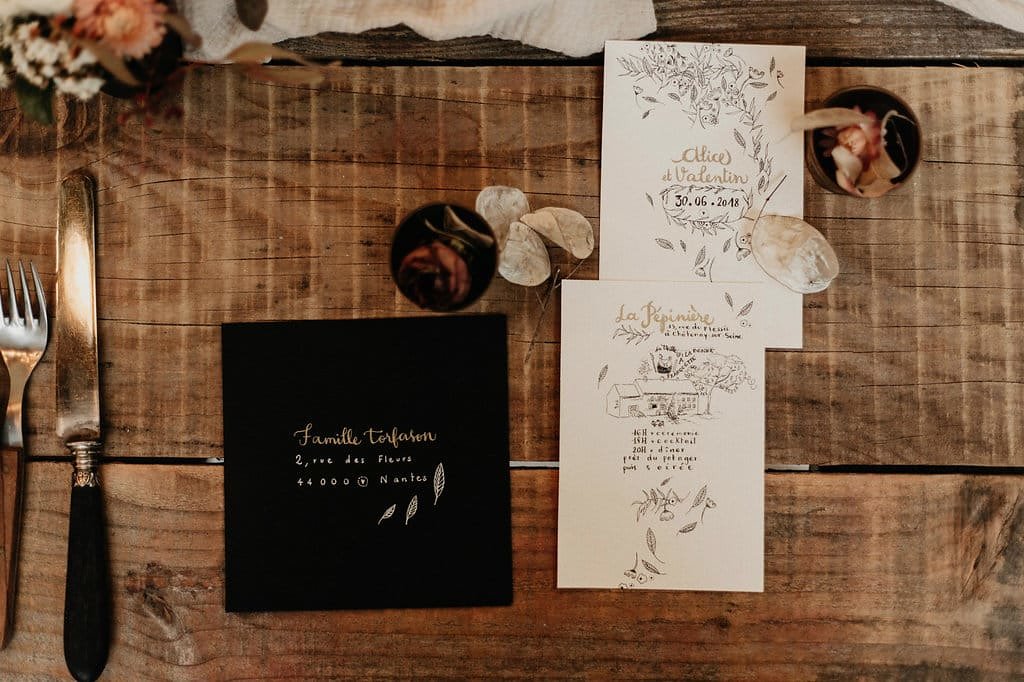 Alice
et Valentin
30.06.2018
La Pépinière
13, rue du Plessis
à Châtenay-sur-Seine
16H • ceremonie
18H • cocktail
20H • dîner
près du potager
puis soirée
Famille Torfason
2, rue des Fleurs
44000 Nantes